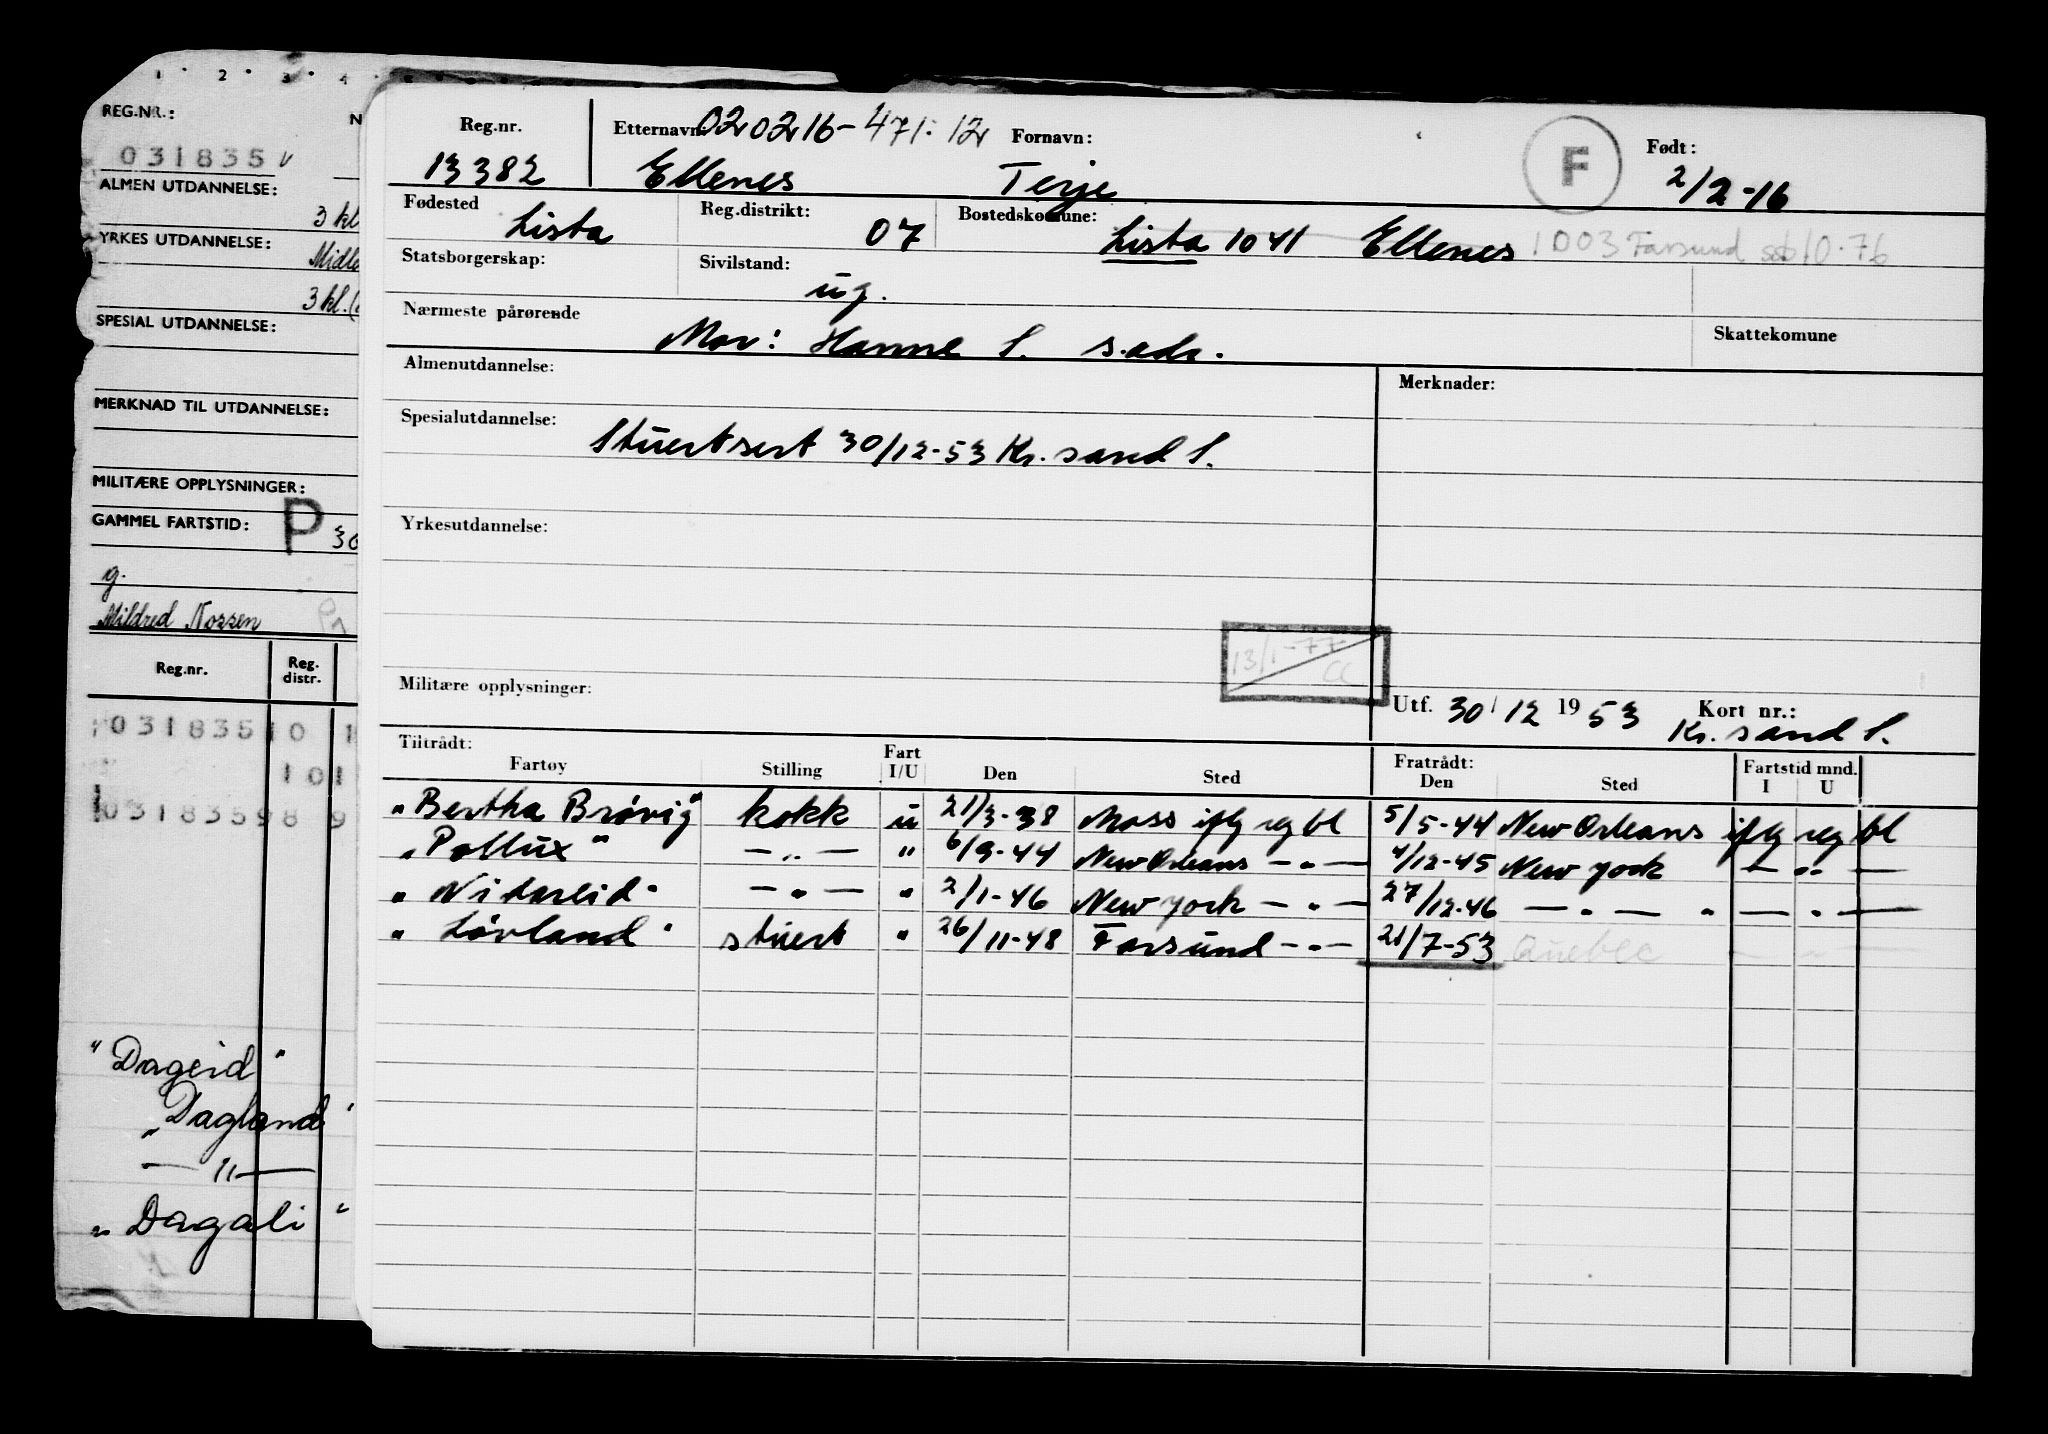 1 2 3 4
REG.NR.:
031835 v
ALMEN UTDANNELSE:
3 kl
YRKES UTDANNELSE:
3 kl.
SPESIAL UTDANNELSE:
MERKNAD TIL UTDANNELSE:
MILITÆRE OPPLYSNINGER:
GAMMEL FARTSTID: P
g.
Mildred Nossen
Reg.nr. Reg. distr.
031835 10 1
101
031835 98 9
"Dageid"
"Dagland"
— " —
"Dagali"
Reg.nr. Etternavn: 020216-471.12 Fornavn: F Født:
13382 Ellenes Terje 2/2-16
Fødested Lista Reg.distrikt: 07 Bostedskomune: Lista 1041 Ellenes 1003 Farsund 10.76
Statsborgerskap: Sivilstand: ug.
Nærmeste pårørende Skattekomune
Mor: Hanne S. s.adr.
Almenutdannelse: Merknader:
Spesialutdannelse: Stuertsert 30/12-53 Kr.sand S.
Yrkesutdannelse:
13/1-77
Militære opplysninger:
Utf. 30/12 1953 Kort nr.:
Kr.sand S.
Tiltrådt: Fratrådt:
Fartøy Stilling Fart I/U Den Sted Den Sted Fartstid mnd. I U
"Bertha Brøvig" kokk u 21/3-38 Moss iflg reg bl 5/5-44 New Orleans iflg reg bl
"Pollux" — " — " 6/9-44 New Orleans — " — 4/12-45 New York — " —
"Nidareid" — " — " 2/1-46 New York — " — 27/12-46 — " — " — " —
"Lövland" stuert " 26/11-48 Farsund — " — 21/7-53 Quebec — " —